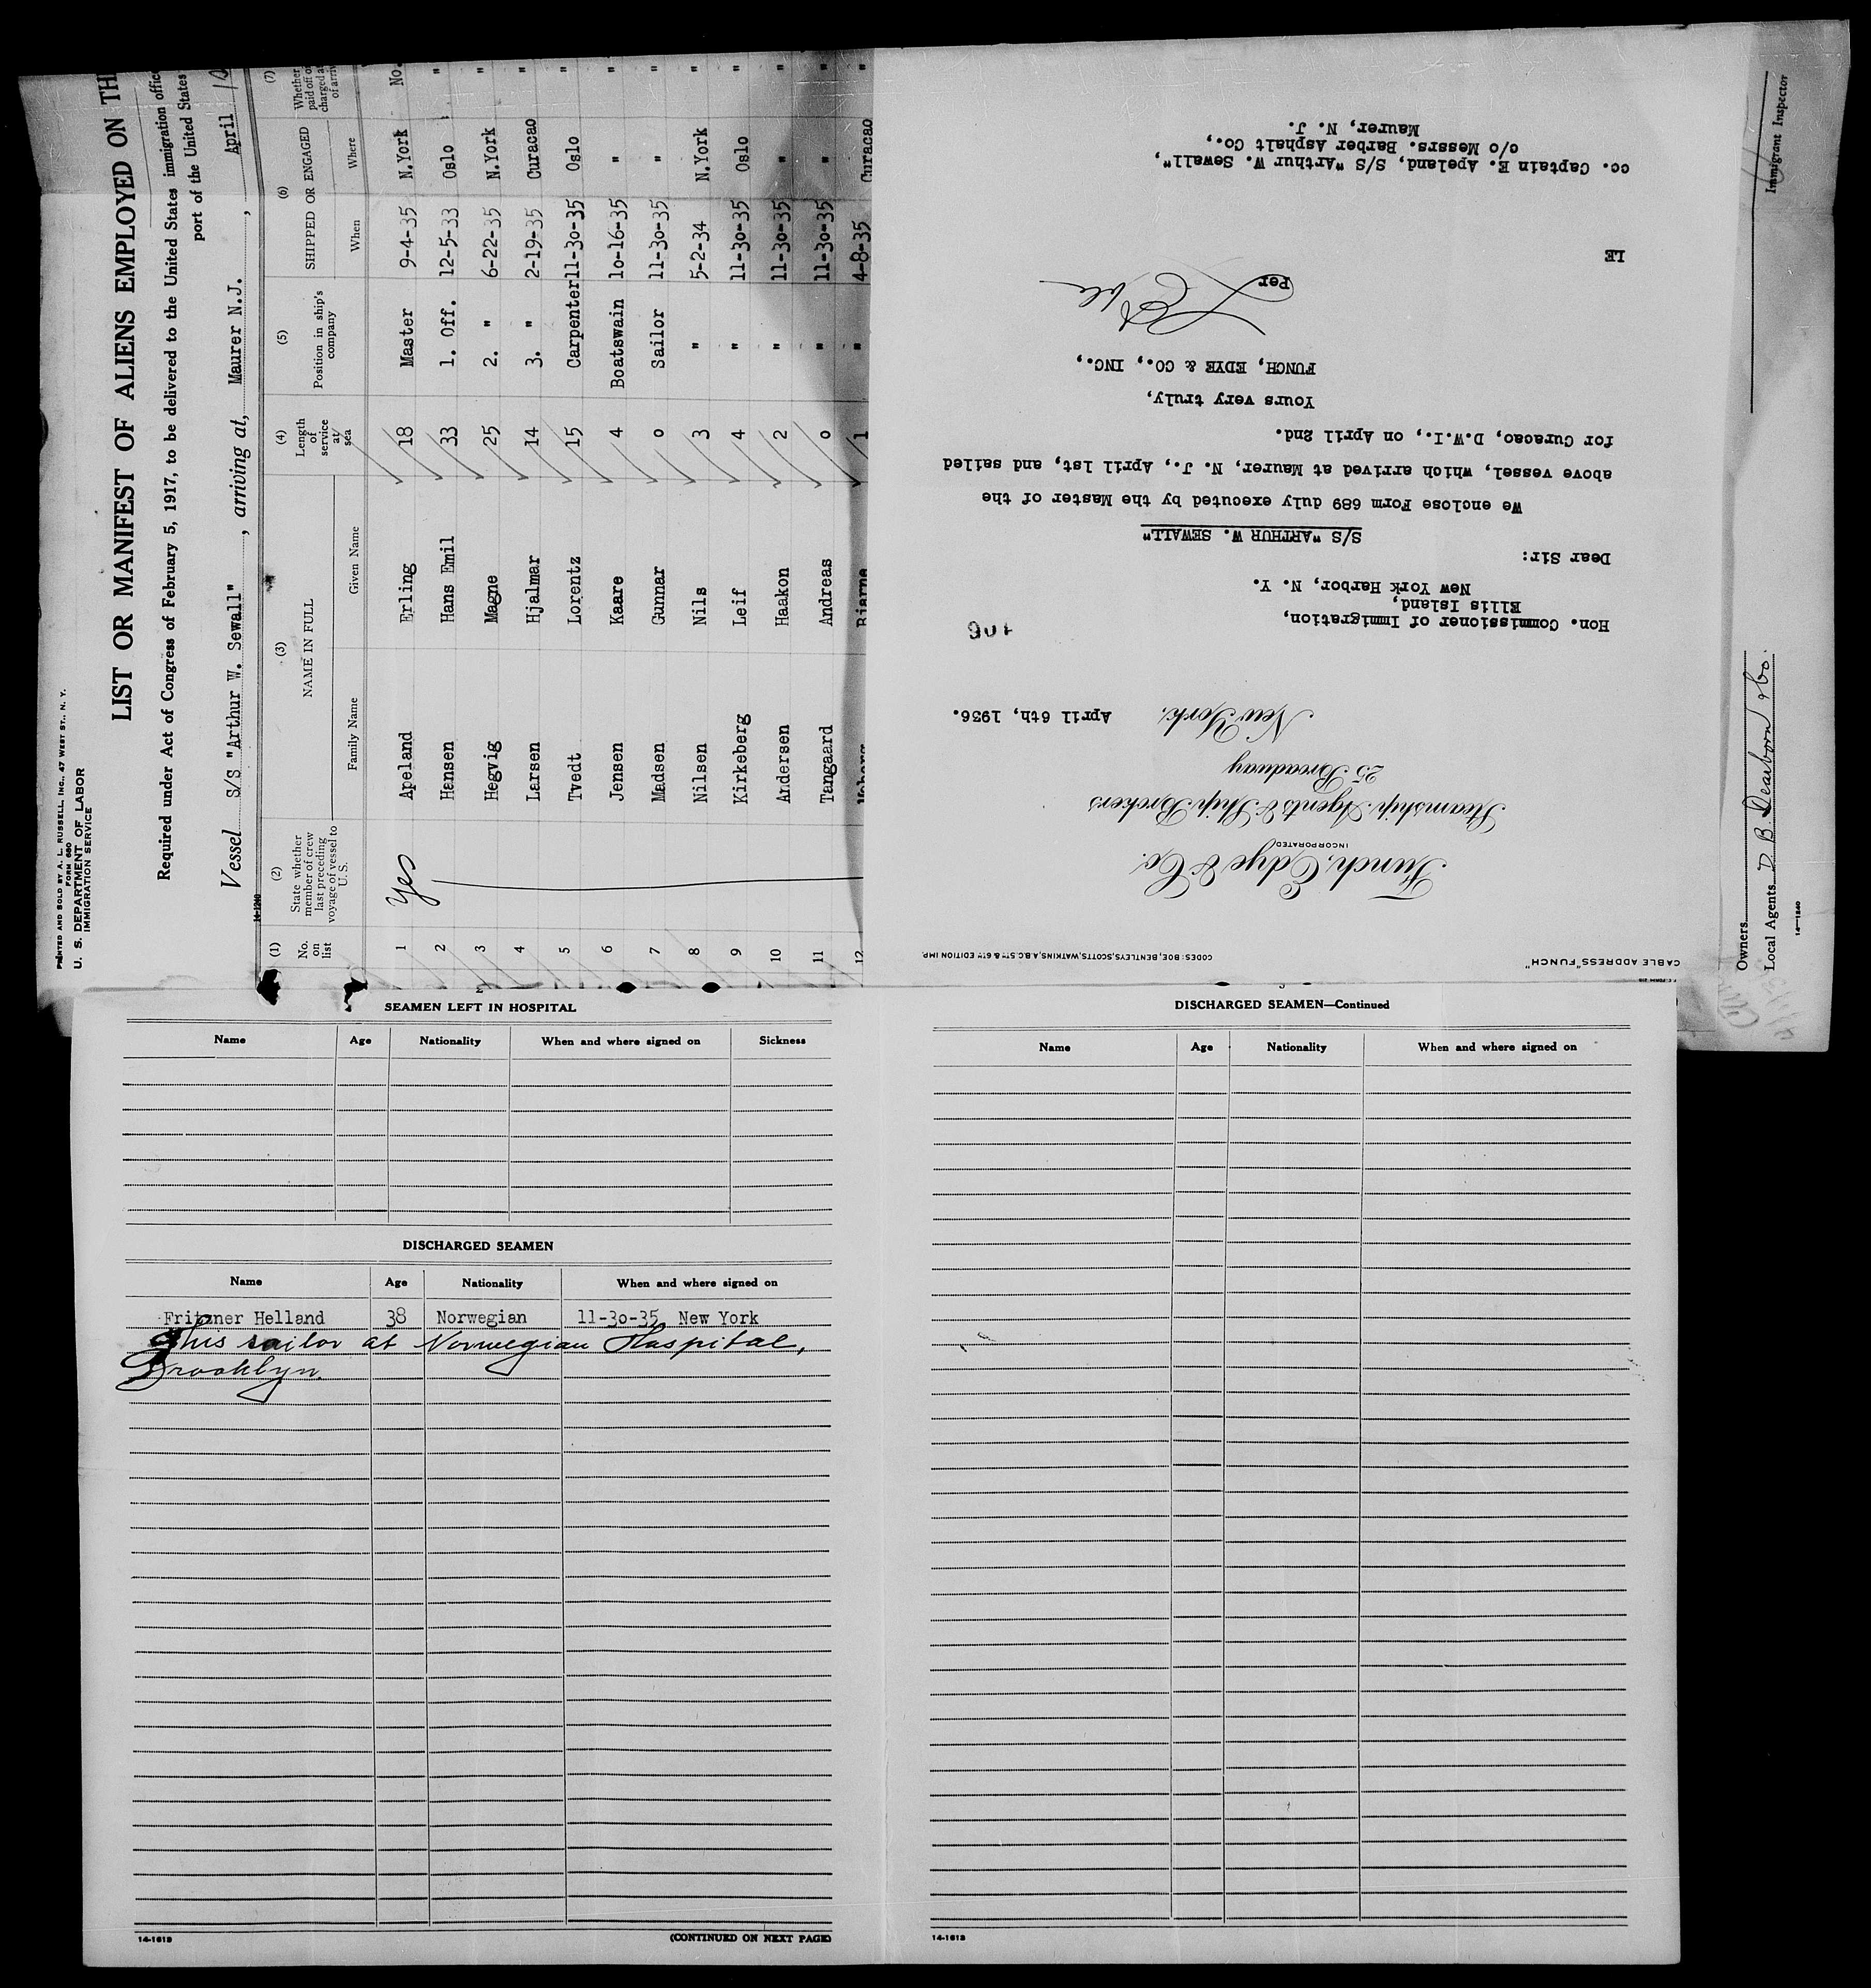 PRINTED AND SOLD BY A. L. RUSSELL, INC., 47 WEST ST., N. Y.
FORM 680
U. S. DEPARTMENT OF LABOR
IMMIGRATION SERVICE
LIST OR MANIFEST OF ALIENS EMPLOYED ON TH
Required under Act of Congress of February 5, 1917, to be delivered to the United States immigration offic
port of the United States
Vessel S/S "Arthur W. Sewall", arriving at, Maurer N.J., April
14-1240
(1) (2) (3) (4) (5) (6) (7)
No. on list
State whether member of crew last preceding voyage of vessel to U. S.
NAME IN FULL
Family Name Given Name
Length of service at sea
Position in ship's company
SHIPPED OR ENGAGED
When Where
Whether paid off o charged a of arriv
1 yes Apeland Erling 18 Master 9-4-35 N.York No.
2 Hansen Hans Emil 33 1. Off. 12-5-33 Oslo "
3 Hegvig Magne 25 2. " 6-22-35 N.York "
4 Larsen Hjalmar 14 3. " 2-19-35 Curacao "
5 Tvedt Lorentz 15 Carpenter 11-30-35 Oslo "
6 Jensen Kaare 4 Boatswain 10-16-35 " "
7 Madsen Gunnar 0 Sailor 11-30-35 " "
8 Nilsen Nils 3 " 5-2-34 N.York "
9 Kirkeberg Leif 4 " 11-30-35 Oslo "
10 Andersen Haakon 2 " 11-30-35 " "
11 Tangaard Andreas 0 " 11-30-35 " "
12 Bjarne 1 " 4-8-35 Curacao "
CABLE ADDRESS "FUNCH"
CODES: BOE, BENTLEYS, SCOTTS, WATKINS, A.B.C. 5TH & 6TH EDITION IMP.
Funch, Edye & Co.
INCORPORATED
Steamship Agents & Ship Brokers
25 Broadway
New York, April 6th, 1936.
Hon. Commissioner of Immigration,
Ellis Island,
New York Harbor, N. Y.
Dear Sir:
S/S "ARTHUR W. SEWALL"
We enclose Form 689 duly executed by the Master of the
above vessel, which arrived at Maurer, N. J., April 1st, and sailed
for Curacao, D.W.I., on April 2nd.
Yours very truly,
FUNCH, EDYE & CO., INC.,
Per
LE
cc. Captain E. Apeland, S/S "Arthur W. Sewall",
c/o Messrs. Barber Asphalt Co.,
Maurer, N. J.
Immigrant Inspector
Owners
Local Agents D. B. Dearborn & Co.
14-1240
SEAMEN LEFT IN HOSPITAL
Name Age Nationality When and where signed on Sickness
DISCHARGED SEAMEN
Name Age Nationality When and where signed on
Fritzner Helland 38 Norwegian 11-30-35 New York
This sailor at Norwegian Hospital,
Brooklyn.
14-1613
(CONTINUED ON NEXT PAGE)
DISCHARGED SEAMEN—Continued
Name Age Nationality When and where signed on
14-1613